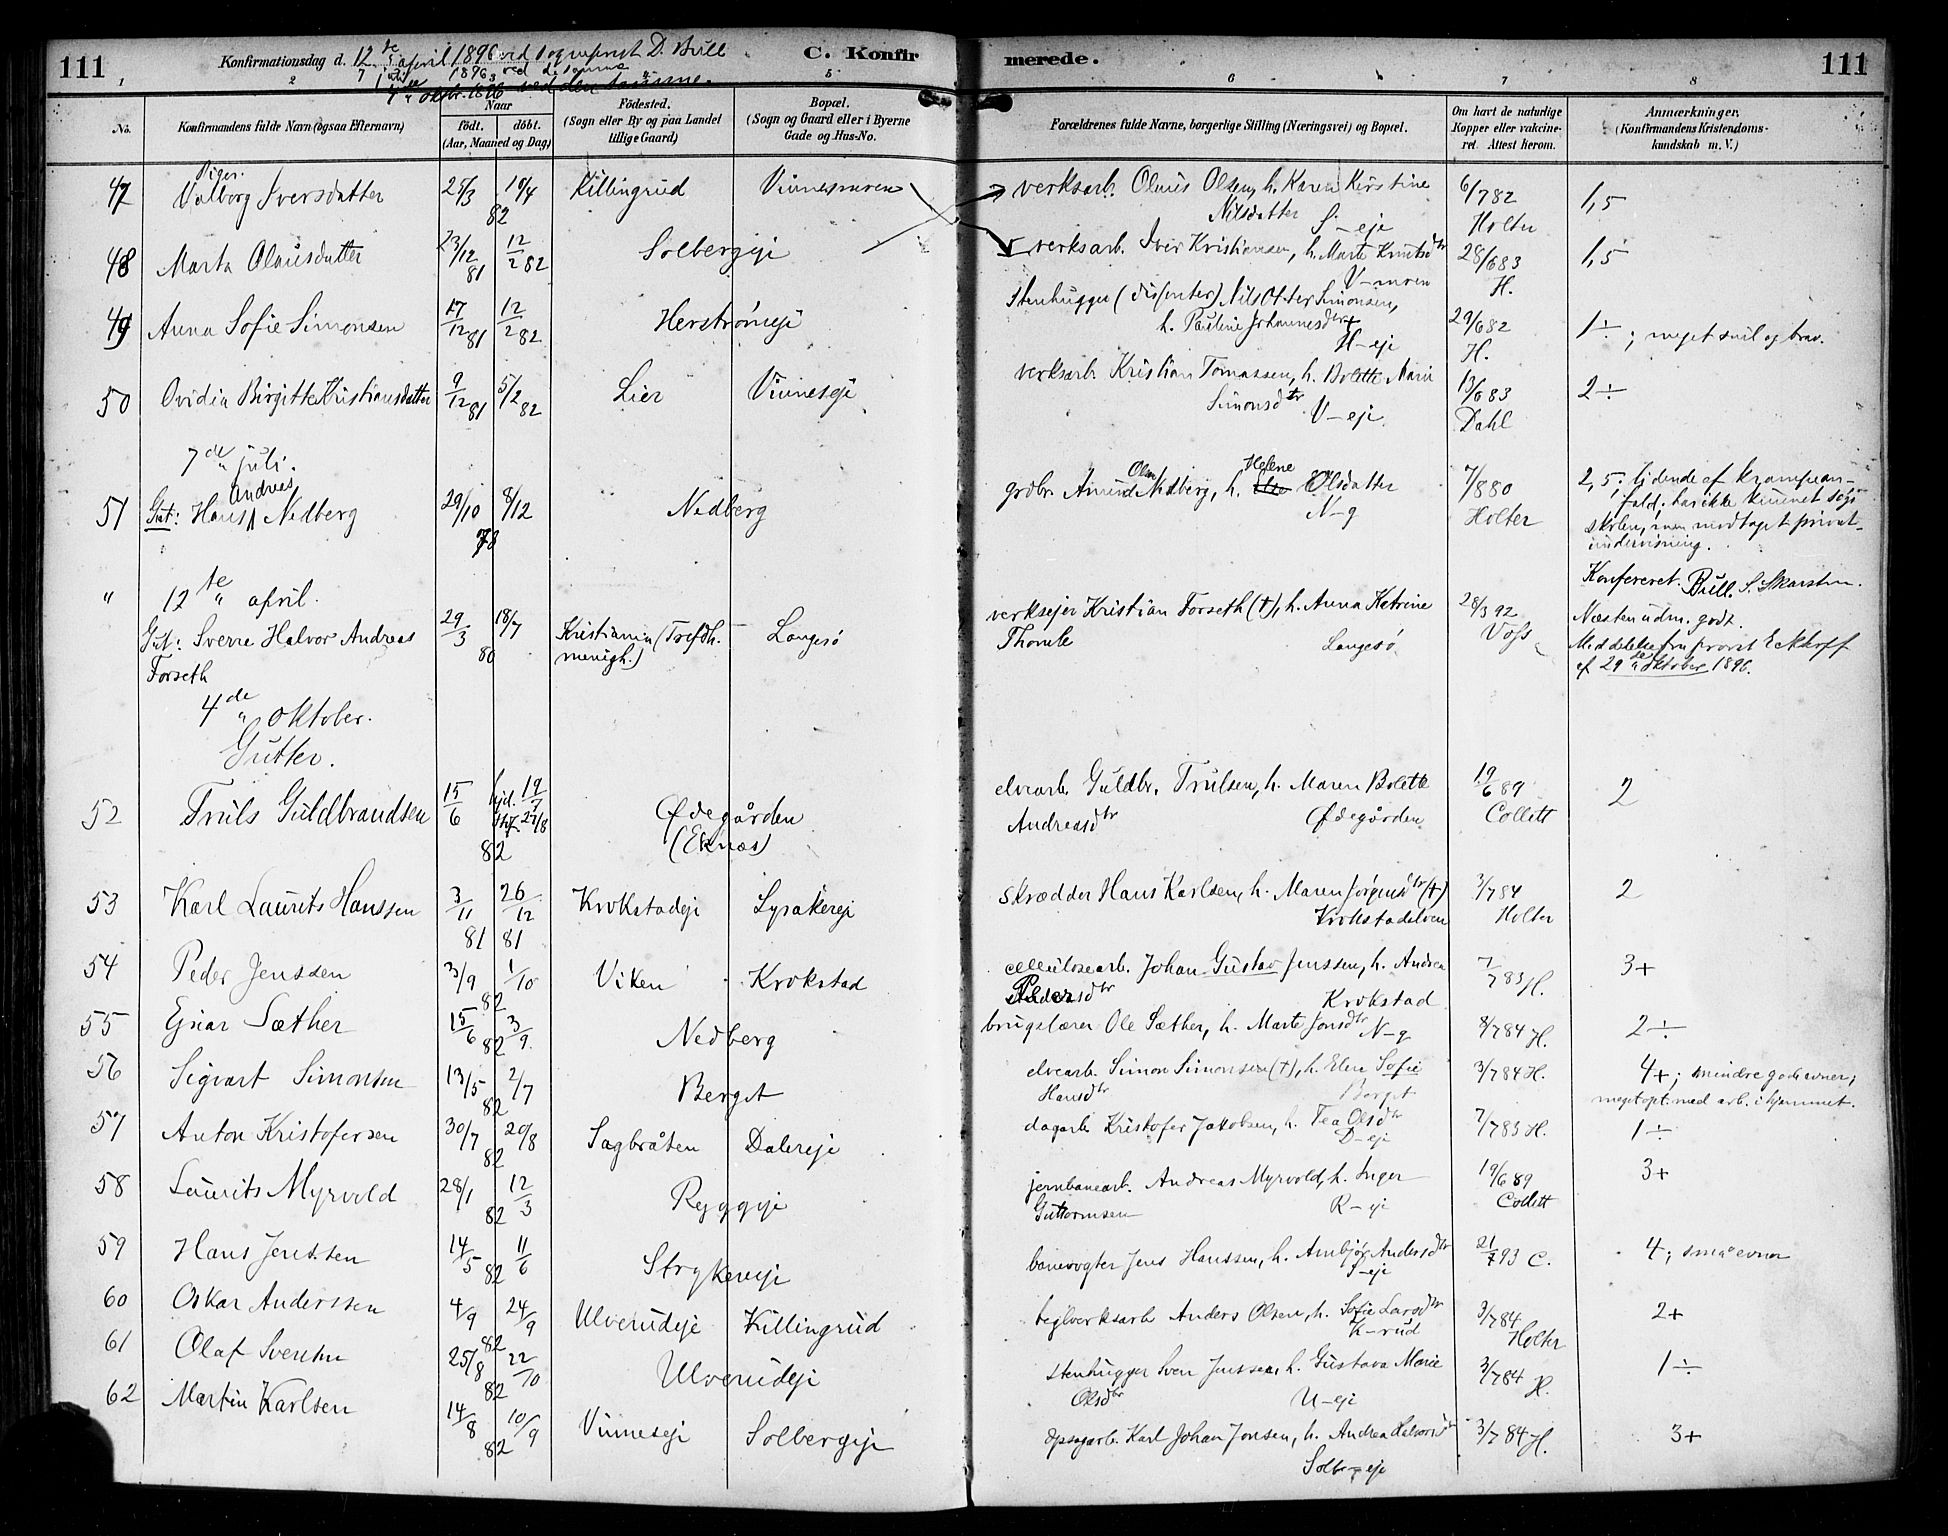 111
Konfirmationsdag d. 12te april 1896 ved sogneprest D. Bull
7de juli 1896 ved desamme
4de oktbr. 1896 ved den samme.
C. Konfirmerede.
111
1 2 3 4 5 6 7 8
No.
Konfirmandens fulde Navn (ogsaa Efternavn)
Naar
født. døbt.
(Aar, Maaned og Dag)
Fødested.
(Sogn eller By og paa Landet tillige Gaard)
Bopæl.
(Sogn og Gaard eller i Byerne Gade og Hus-No.
Forældrenes fulde Navne, borgerlige Stilling (Næringsvei) og Bopæl.
Om havt de naturlige Kopper eller vakcineret. Attest herom.
Anmærkninger.
(Konfirmandens Kristendomskundskab m. V.)
Piger.
47 Valborg Iversdatter 25/3 10/4 82 Killingrud Vinnesmoren verksarb. Olaus Olsen, h. Karen Kirstine Nilsdatter S-eje 6/7 82 Holter 1,5
48 Marta Olausdatter 23/12 81 12/2 82 Solbergeje verksarb. Iver Kristiansen, h. Marte Knutsdtr V-moren 28/6 83 H. 1,5
49 Anna Sofie Simonsen 17/12 81 12/2 82 Herstrømeje Stenhugger (dissenter) Nils Otter Simonsen, h. Pauline Johannesdtr H-eje 29/6 82 H. 1÷; meget snil og brav.
50 Ovidia Birgitte Kristiansdatter 9/12 81 5/2 82 Lier Vinneseje verksarb. Kristian Tomassen, h. Bolette Marie Simonsdtr V-eje. 13/6 83 Dahl 2÷
7de juli.
51 Gut: Hans Andreas Nedberg 29/10 8/12 78 Nedberg grdbr. Amund Olsen Nedberg, h. Helene Olsdatter N-g 7/8 80 Holter 2,5; lidende af krampeanfald; har ikke kunnet søge skolen, men modtaget privatundervisning.
Konfereret. Bull. S. Skarsten.
" 12te april.
Gut: Sverre Halvor Andreas Forseth 29/3 18/7 80 Kristiania (Trefdh. menigh.) Langesø verksejer Kristian Forseth (†), h. Anna Katrine Thomle Langesø 28/3 92 Voss Næsten udm. godt.
Meddelelse fra provst Eckhoff af 29de oktober 1896.
4de oktober.
Gutter.
52 Truls Guldbrandsen 15/6 hjd. 19/7 stf. 27/8 82 Ødegården (Eknæs) elvearb. Guldbr. Trulsen, h. Maren Bolette Andreasdtr Ødegården 19/6 89 Collett 2
53 Karl Laurits Hanssen 3/11 81 26/12 81 Krokstadeje Lysakereje Skrædder Hans Karlsen, h. Maren Jørgensdtr (†) Krokstadelven 3/7 84 Holter 2
54 Peder Jenssen 3/9 1/10 82 Viken Krokstad cellulosearb. Johan Gustav Jenssen, h. Andrea Pedersdtr Krokstad 7/7 83 H. 3+
55 Ejnar Sæther 15/6 3/9 82 Nedberg brugslærer Ole Sæther, h. Marte Jonsdtr N-g 8/7 84 H. 2÷
56 Sigvart Simonsen 13/5 2/7 82 Berget elvearb. Simon Simonsen (†), h. Elen Sofie Hansdtr Berget 3/7 84 H. 4+; mindre gode evner; meget opt. med arb. i hjemmet.
57 Anton Kristofersen 30/7 20/8 82 Sagbråten Dalereje dagarb. Kristofer Jakobsen, h. Tea Olsdtr D-eje 7/7 83 H. 1÷
58 Laurits Myrvold 28/1 12/3 82 Ryggeje jernbanearb. Andreas Myrvold, h. Inger Guttormsen R-eje 19/6 89 Collett 3+
59 Hans Jenssen 14/5 11/6 82 Strykereje banevogter Jens Hanssen, h. Ambjør Andersdtr S-eje 21/7 93 C. 4; små evner
60 Oskar Anderssen 4/9 24/9 82 Ulverudeje Killingrud teglverksarb. Anders Olsen, h. Sofie Larsdtr K-rud 3/7 84 Holter 2+
61 Olaf Svensen 25/8 22/10 82 Ulverudeje stenhugger Sven Jenssen, h. Gustava Marie Olsdtr U-eje 3/7 84 H. 1÷
62 Martin Karlsen 14/8 10/9 82 Vinneseje Solbergeje opsagarb. Karl Johan Jonsen, h. Andrea Halvorsdtr Solb-eje 3/7 84 H. 3+